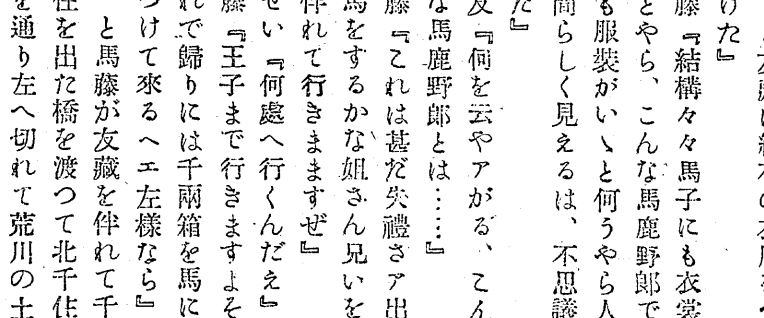 けた』
藤『結構々々馬子にも衣裳
とやら、こんな馬鹿野郎で
も服裝がいゝと何うやら人
間らしく見えるは、不思議
だ』
友『何を云やアがる、こん
な馬鹿野郎とは……』
藤『これは甚だ失禮さア出
馬をするかな姐さん兄いを
伴れて行きまますぜ』
せい『何處へ行くんだえ』
藤『王子まで行きますよそ
れで歸りには千兩箱を馬に
つけて來るヘエ左樣なら』
と馬藤が友藏を伴れて千
住を出た橋を渡つて北千住
を通り左へ切れて荒川の土